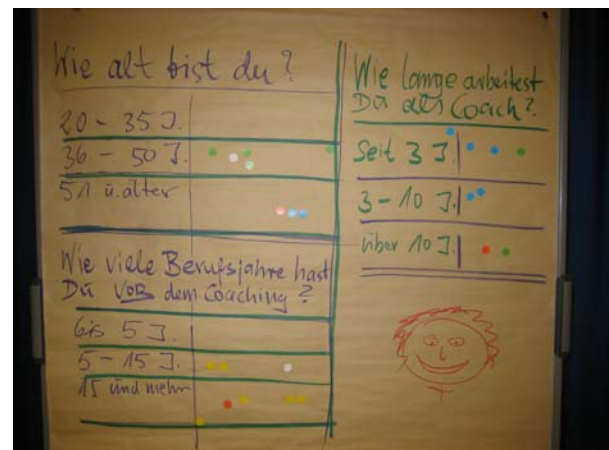 Wie alt bist du?
20 - 35 J.
36 - 50 J.
51 ü. älter
Wie viele Berufsjahre hast
Du VOR dem Coaching?
bis 5 J.
5 - 15 J.
15 und mehr
Wie lange arbeitest
Du als Coach?
Seit 3 J.
3 - 10 J.
über 10 J.